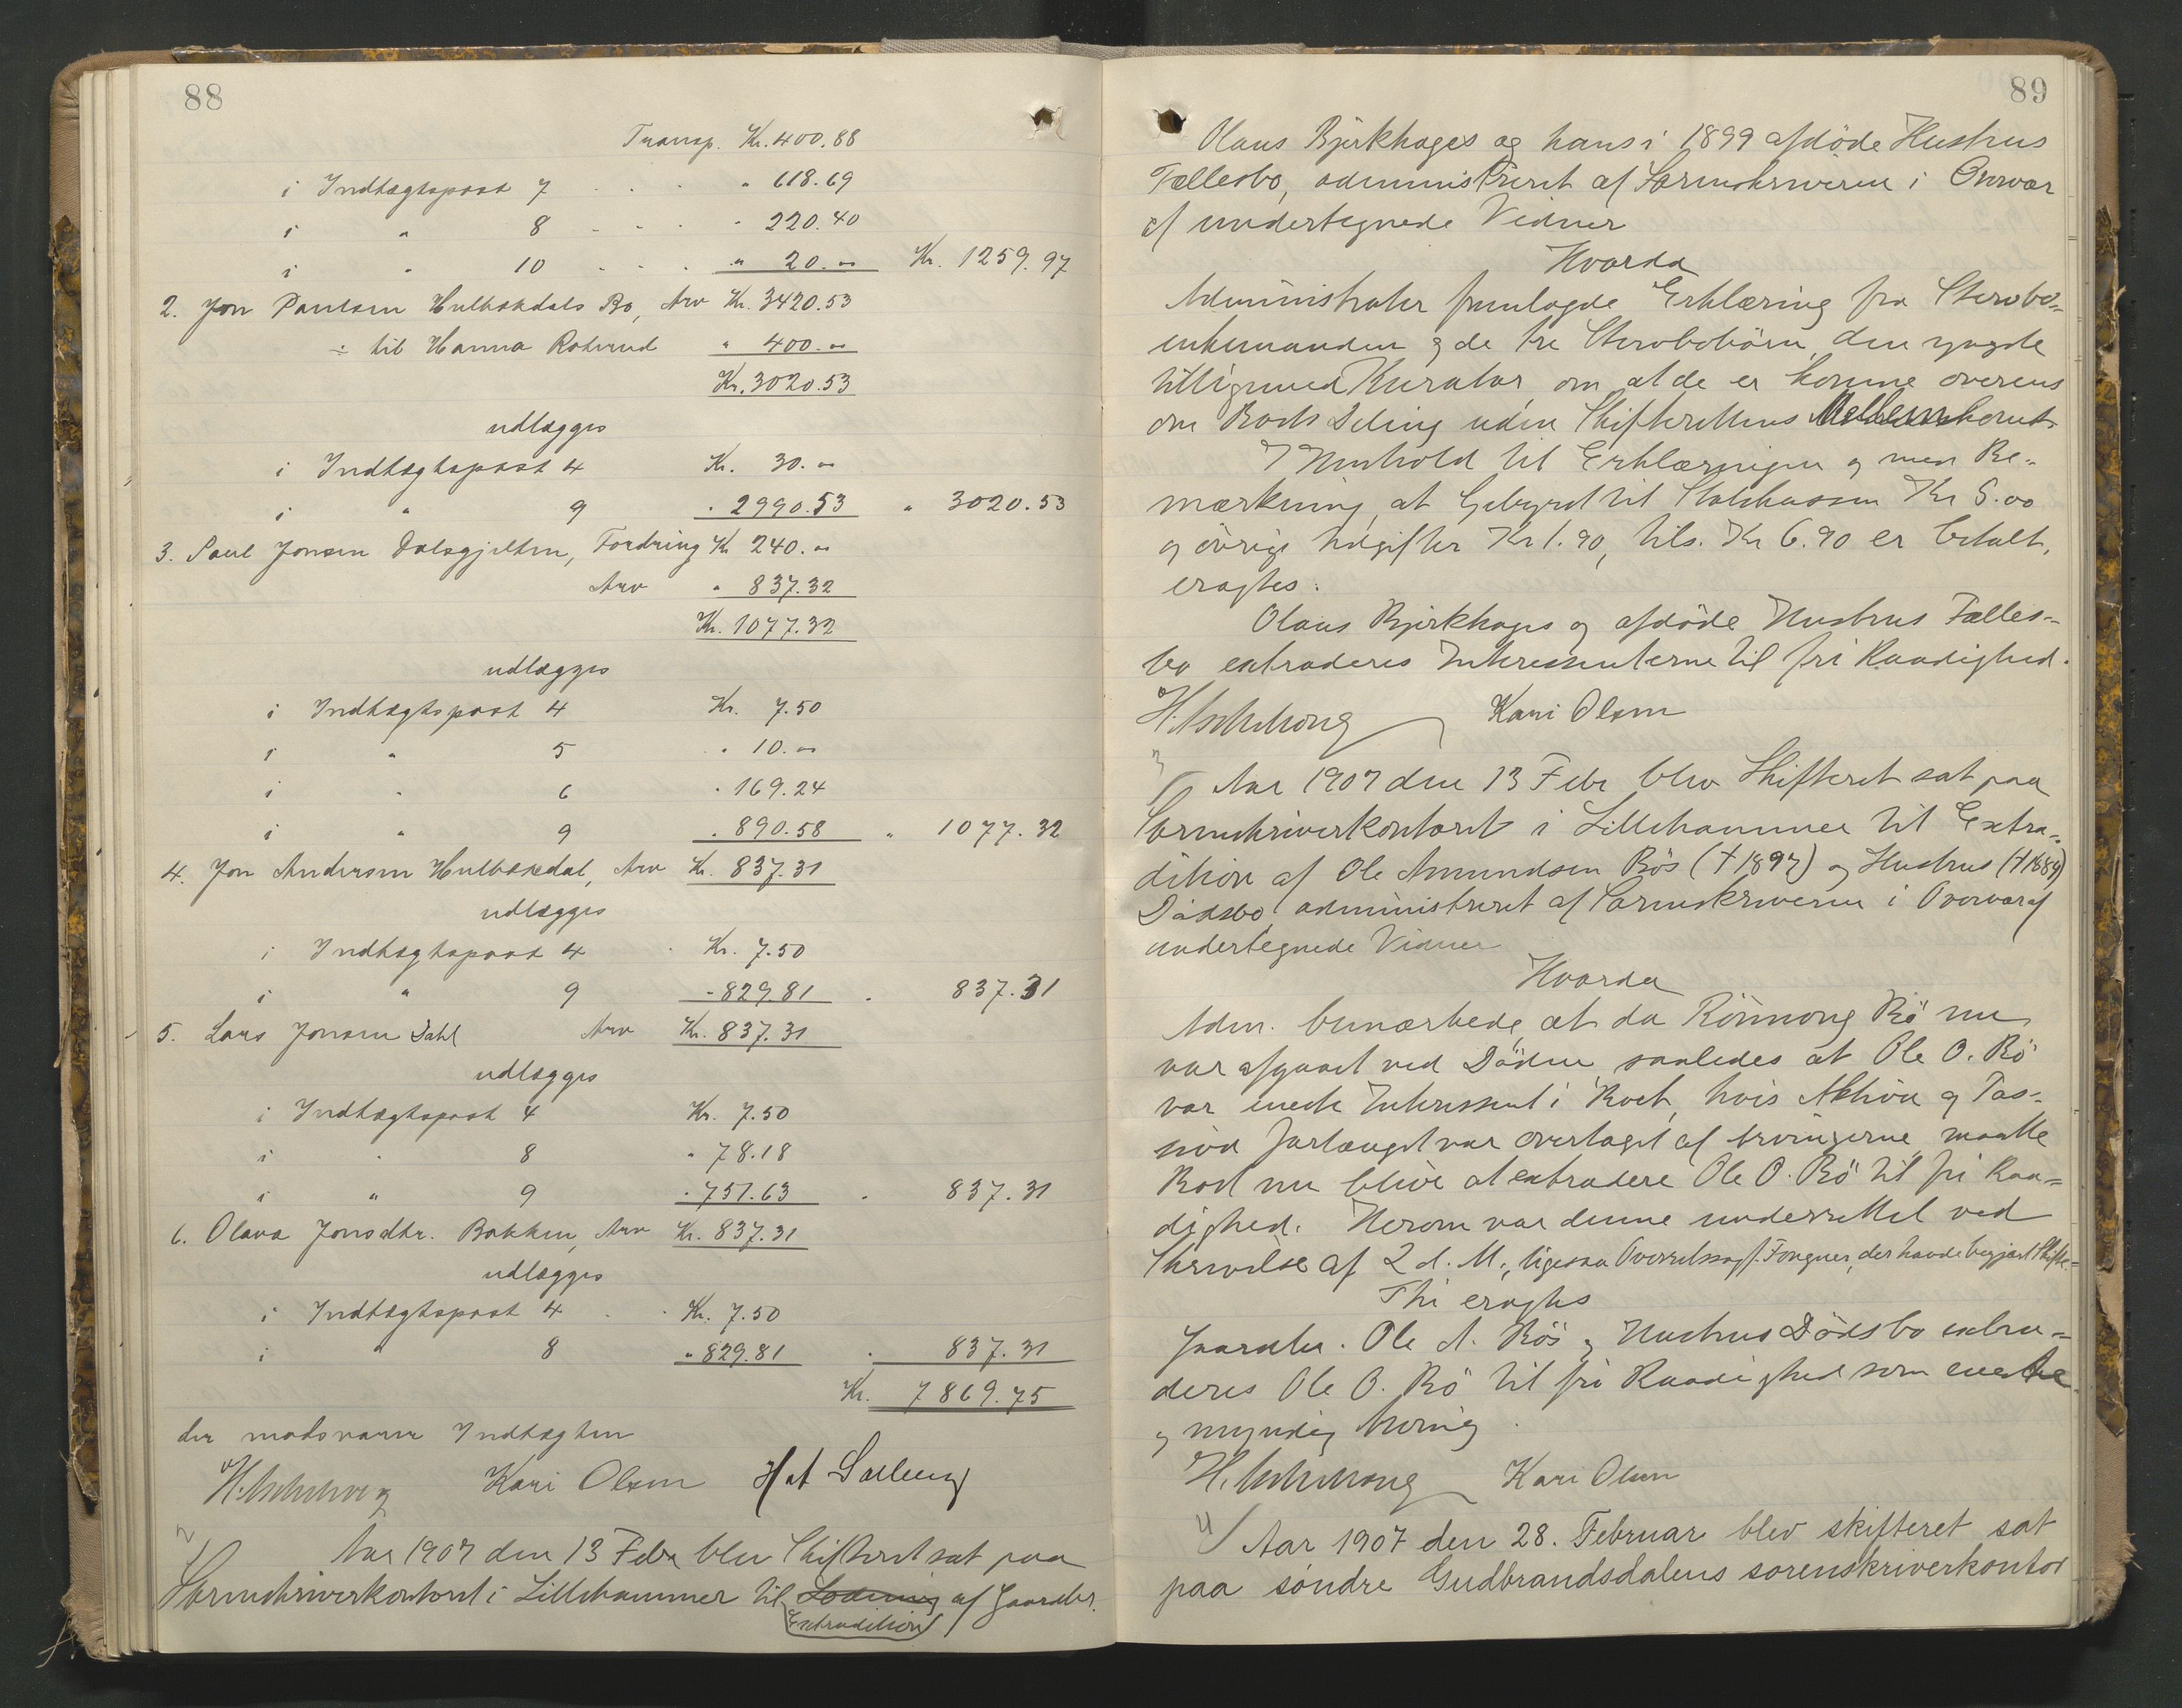 88
Transp. Kr. 400.88
i Indtægtspost 7 . . . " 618.69
i " 8 . . . " 220.40
i " 10 . . . " 20.00 Kr. 1259.97
2. Jon Paulsen Hulbækdals Bo, Arv Kr. 3420.53
÷ til Hanna Roterud " 400.00
Kr. 3020.53
udlægges
i Indtægtspost 4 Kr. 30.00
i " 9 " 2990.53 " 3020.53
3. Paul Jonsen Dalsgjelten, Fordring Kr 240.00
Arv " 837.32
Kr. 1077.32
udlægges
i Indtægtspost 4 Kr. 7.50
i " 5 " 10.00
i " 6 " 169.24
i " 9 " 890.58 " 1077.32
4. Jon Andersen Hulbækdal, Arv Kr. 837.31
udlægges
i Indtægtspost 4 Kr. 7.50
i " 9 " 829.81 " 837.31
5. Lars Jonsen Dahl Arv Kr. 837.31
udlægges
i Indtægtspost 4 Kr. 7.50
i " 8 " 78.18
i " 9 " 751.63 " 837.31
6. Olava Jonsdtr. Bakken, Arv Kr. 837.31
udlægges
i Indtægtspost 4 . . Kr. 7.50
i " 8 " 829.81 " 837.31
Kr. 7869.75
der modsvarer Indtægten
Kari Olsen
2/ Aar 1907 den 13 Febr blev Skifteret sat paa
Sorenskriverkontoret i Lillehammer til Extradition af Gaardbr.
89
Olaus Bjerkhages og hans i 1899 afdöde Hustrus
Fællesbo, administreret af Sorenskriveren i Overvær
af undertegnede Vidner
Hvorda
Administrator fremlagde Erklæring fra Stervbo-
enkemanden og de tre Stervbobörn, den yngste
tilligemed Kurator, om at de er komne overens
om Boets Deling uden Skifterettens Mellemkomst
I Henhold til Erklæringen og med Be-
mærkning, at Gebyret til Statskassen Kr 5.00
og övrige Udgifter Kr 1.90, tils. Kr 6.90 er betalt,
eragtes:
Olaus Bjerkhages og afdöde Hustrus Fælles-
bo extraderes Interessenterne til fri Raadighed.
Kari Olsen
3/ Aar 1907 den 13 Febr blev Skifteret sat paa
Sorenskriverkontoret i Lillehammer til Extra-
dition af Ole Amundsen Bös († 1897) og Hustrus († 1884)
Dödsbo, administreret af Sorenskriveren i Overvær af
undertegnede Vidner
Hvorda
Adm. bemærkede, at da Rönnoug Bö nu
var afgaaet ved Döden, saaledes at Ole O. Bö
var eneste Interessent i Boet, hvis Aktiva og Pas-
siva forlængst var overtaget af Arvingerne, maatte
Boet nu blive at extradere Ole O. Bö til fri Raa-
dighed. Herom var denne underrettet ved
Skrivelse af 2 d. M., ligesaa Overretssagf. Fougner, der havde begjært Skifte-
Thi eragtes
Gaardbr. Ole A. Bös og Hustrus Dödsbo extra-
deres Ole O. Bö til fri Raadighed som eneste
og myndig Arving.
Kari Olsen
4/ Aar 1907 den 28. Februar blev skifteret sat
paa söndre Gudbrandsdalens sorenskriverkontor